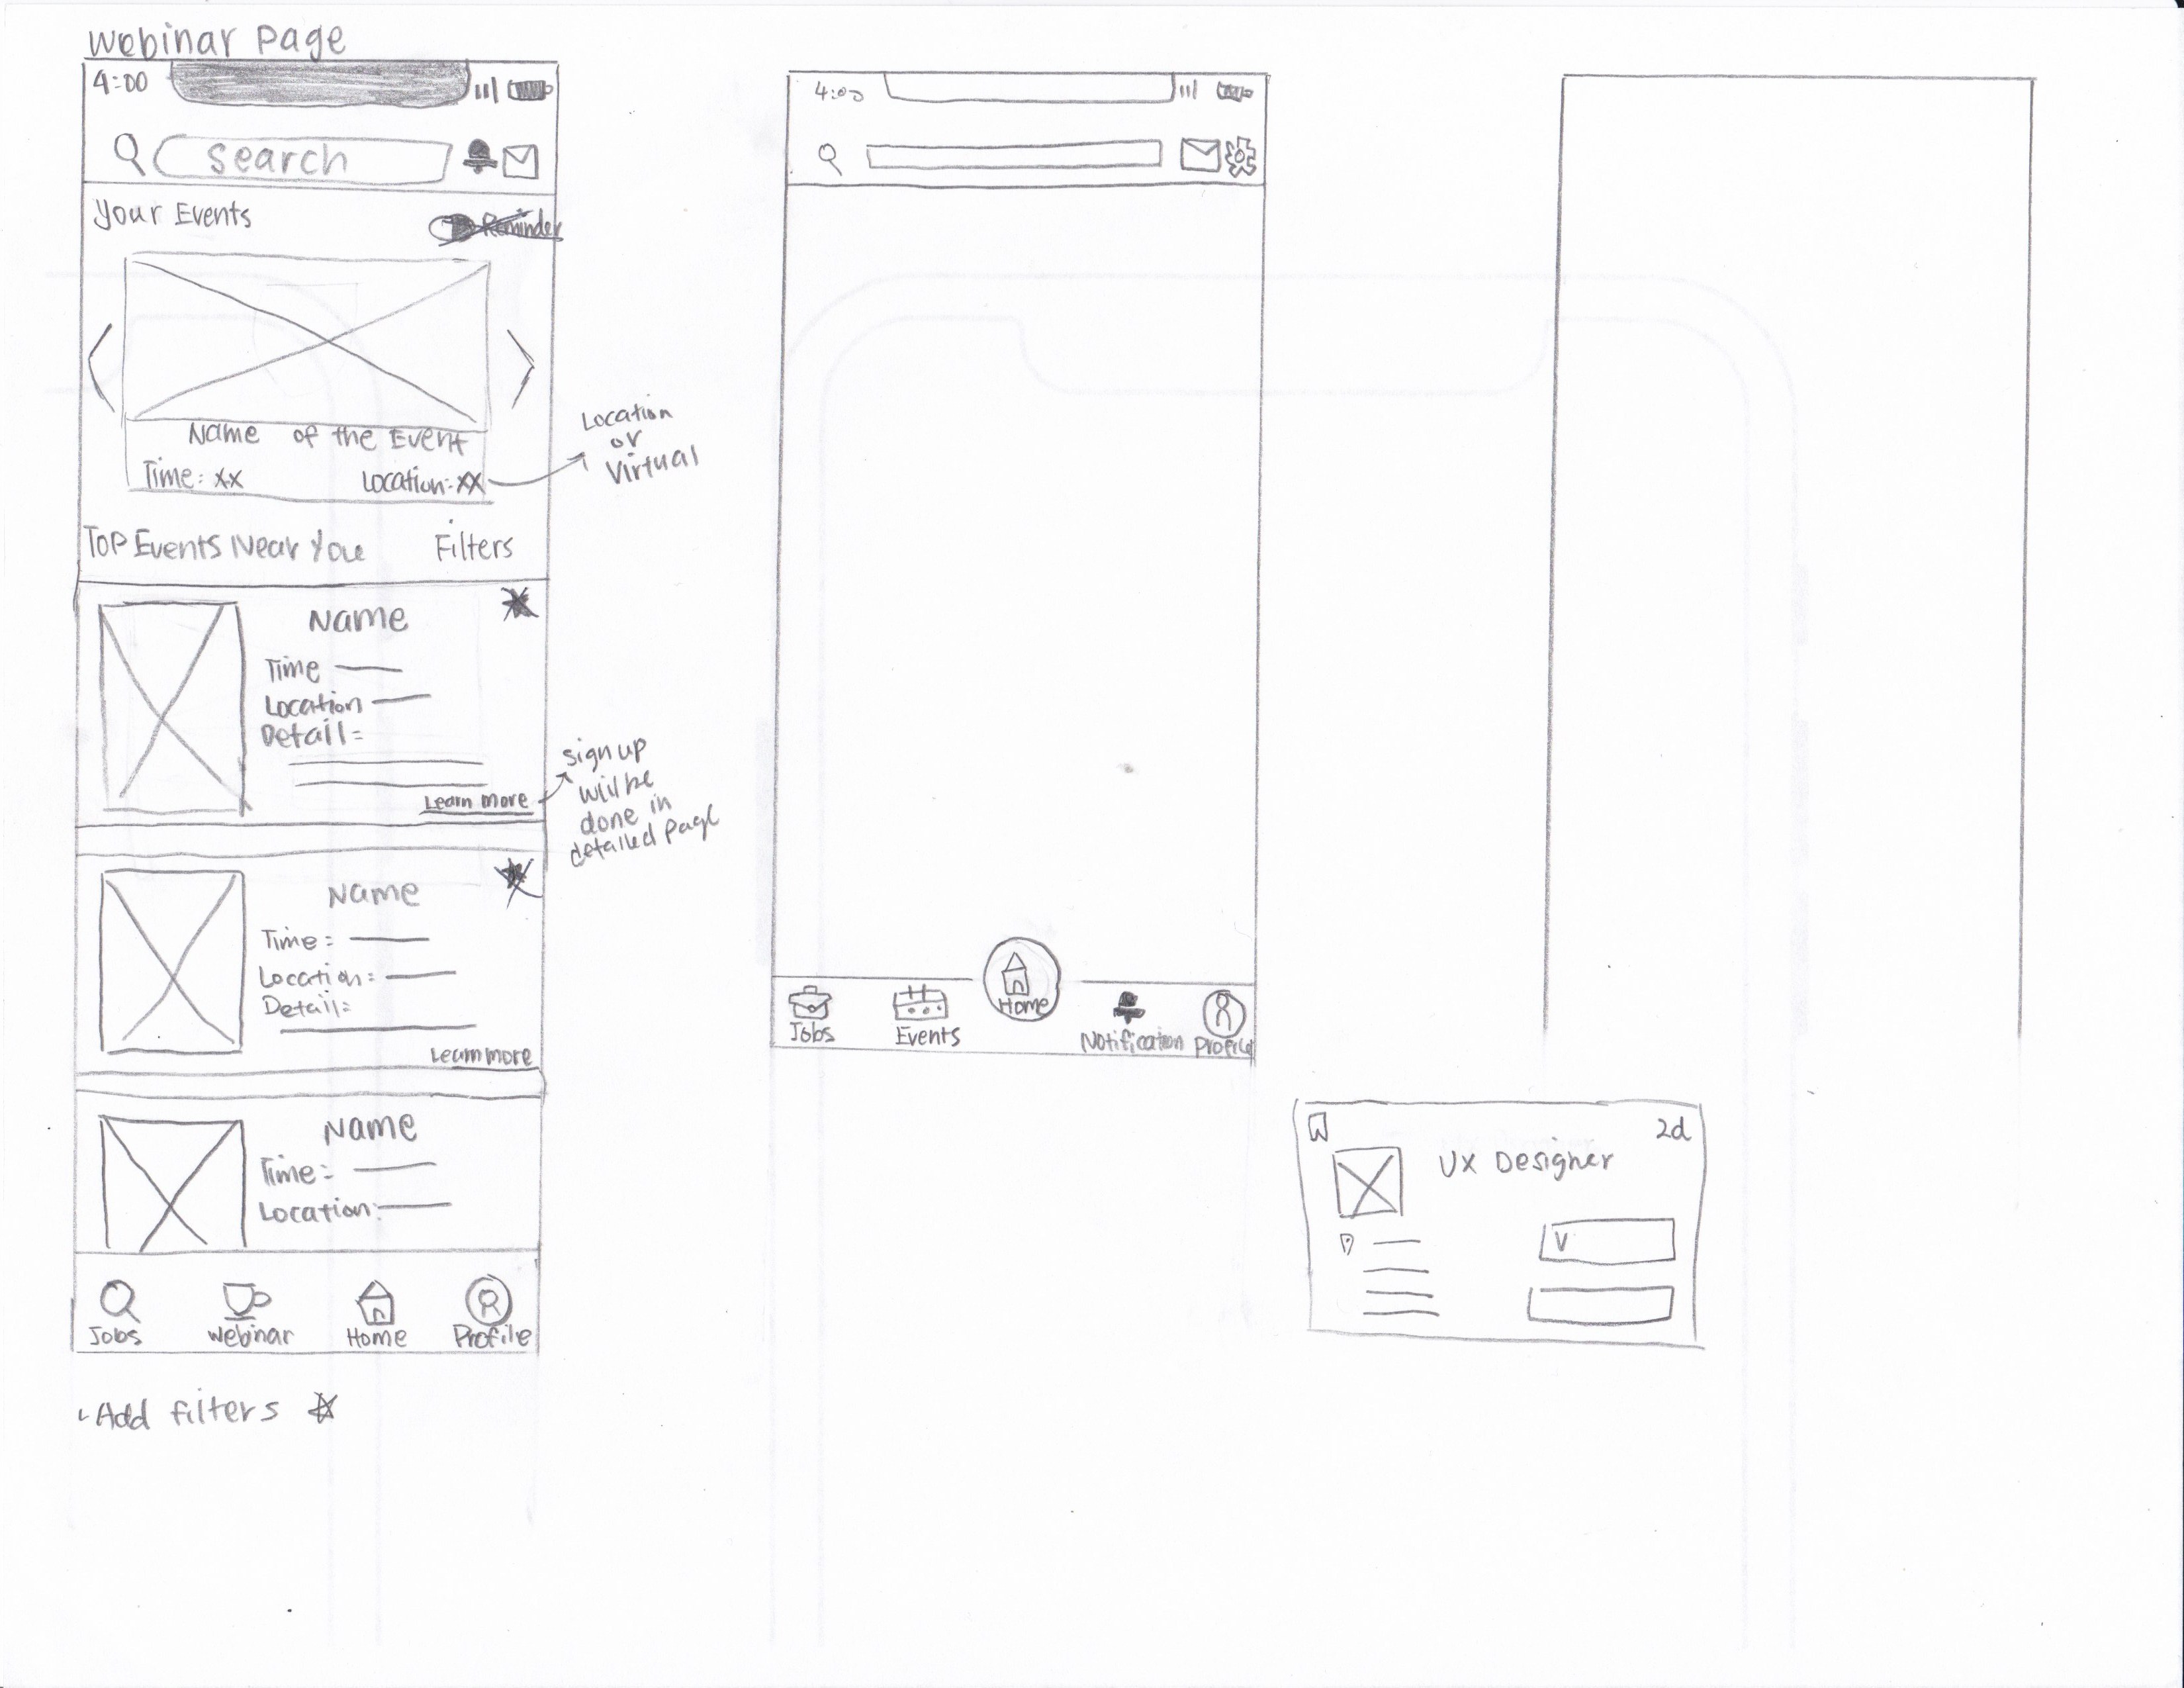 Webinar Page
4:00
Search
Your Events
Reminder
Name of the Event
Time: xx Location: xx
Location
or
Virtual
Top Events Near You Filters
Name
Time
Location
Detail:
Learn more
sign up
will be
done in
detailed page
Name
Time:
Location:
Detail:
Learn more
Name
Time:
Location:
Jobs Webinar Home Profile
Add filters
4:00
Jobs Events Home Notification Profile
2d
UX Designer
V